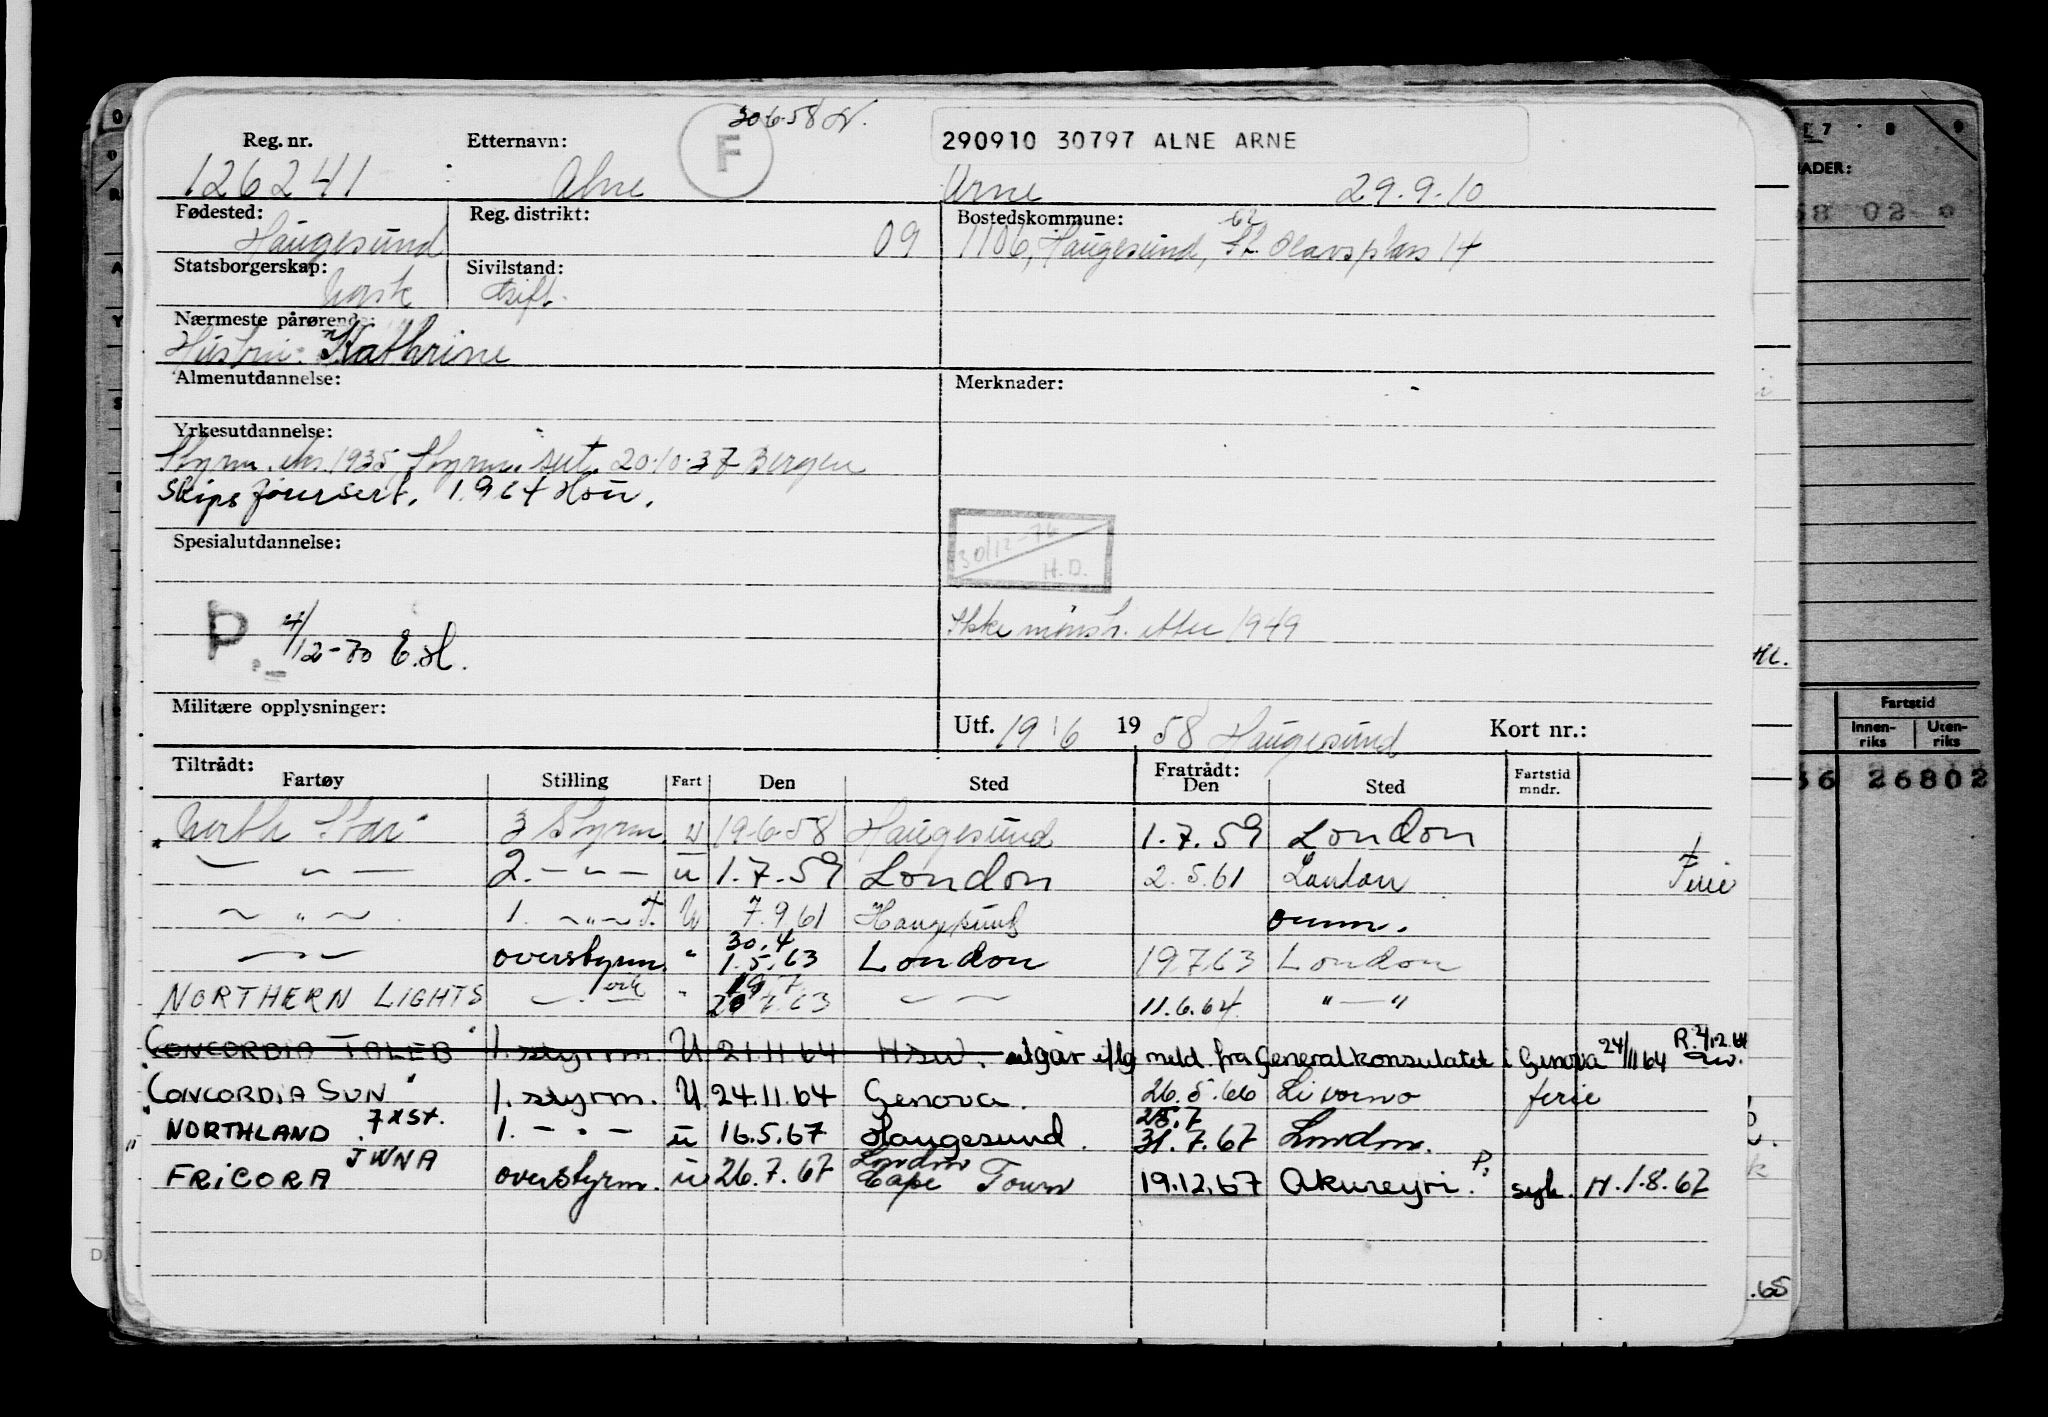 30.6.58
F
290910 30797 ALNE ARNE
Reg. nr. Etternavn:
126241 Alne Arne 29.9.10
Fødested: Reg. distrikt: Bostedskommune:
Haugesund 09 1106, Haugesund, St. Olavsplass 14
Statsborgerskap: Sivilstand:
Norsk Gift.
Nærmeste pårørende:
Hustru: Kathrine
Almenutdannelse: Merknader:
Yrkesutdannelse:
Styrm. eks. 1935 Styrm. sert. 20.10.37 Bergen
Skipsførersert. 1964 Hsu.
Spesialutdannelse:
30/12-76
H.D.
Ikke mønstr. etter 1949
P. 4/12-70 E.H.
Militære opplysninger:
Utf. 19/6 1958 Haugesund Kort nr.:
Tiltrådt: Fratrådt:
Fartøy Stilling Fart Den Sted Den Sted Fartstid mndr.
"North Star" 3 Styrm. u 19.6.58 Haugesund 1.7.59 London
— " — 2. — " — u 1.7.59 London 2.5.61 London Ferie
— " — 1. — " — U 7.9.61 Haugesund omm.
— " — overstyrm. " 30.4 1.5.63 London 19.7.63 London
NORTHERN LIGHTS — " — " 63 — " — 11.6.64 " — "
"CONCORDIA TALEB" 1. styrm. U 21.11.64 HSU. utgår iflg meld. fra Generalkonsulatet i Genova 24/11 64 R. 4/12.64
"CONCORDIA SUN" 1. styrm. U. 24.11.64 Genova. 26.5.66 Livorno ferie
"NORTHLAND" 7XST. 1. — " — u 16.5.67 Haugesund. 25.7 31.7.67 London.
FRICORA JWNA overstyrm. u 26.7.67 London Cape Town 19.12.67 Akureyri. P. syk. H. 1.8.67
Fartstid
Innen-riks Uten-riks
26802
.65